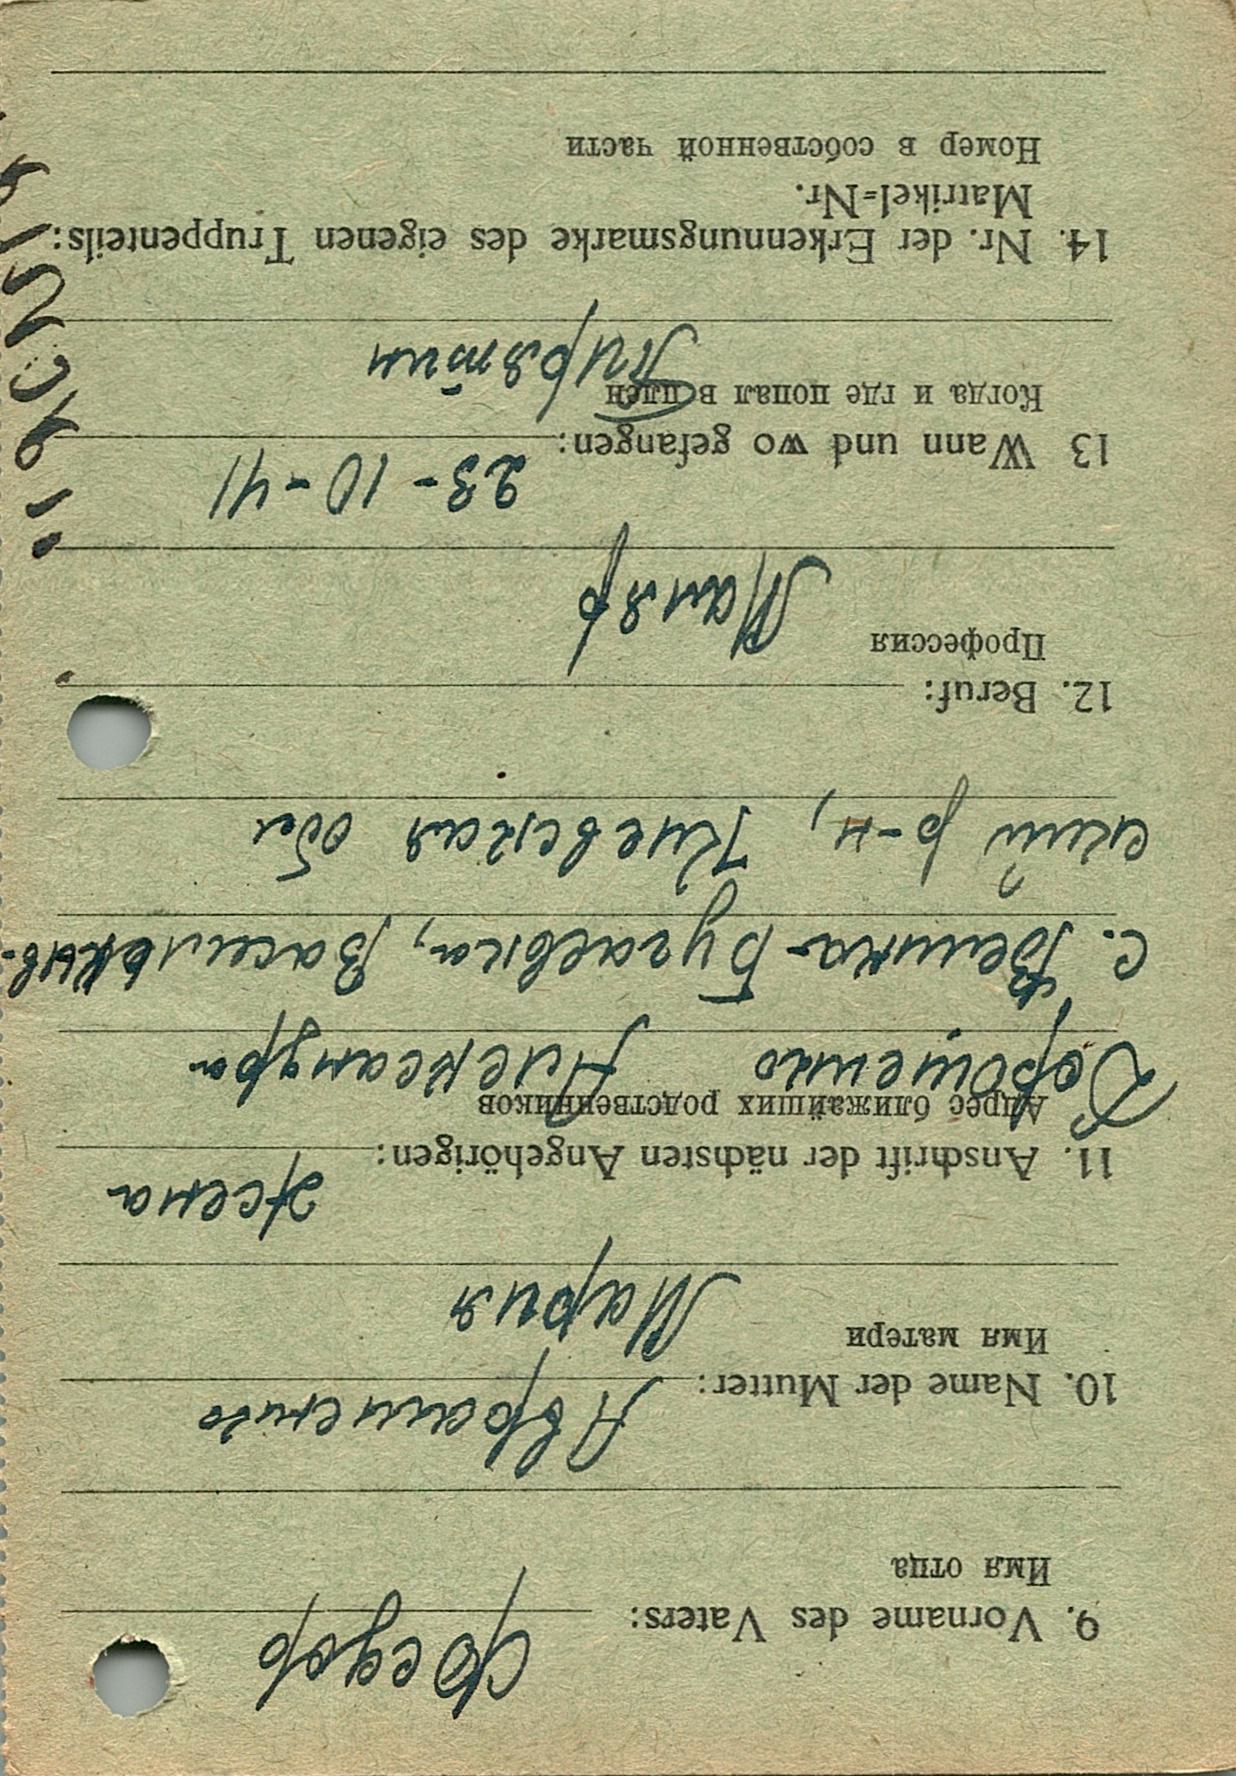 9. Vorname des Vaters: Федор
Имя отца
Авраменко
10. Name der Mutter:
Имя матери
Мария
жена
11. Anschrift der nächsten Angehörigen:
Адрес ближайших родственников
Александра
с. Велика-Бугаевка, Васильков-
ский р-н, Киевская обл
12. Beruf:
Профессия
Маляр
23-10-41
13 Wann und wo gefangen:
Когда и где попал в плен
Пирятин
14. Nr. der Erkennungsmarke des eigenen Truppenteils:
Matrikel=Nr.
Номер в собственной части